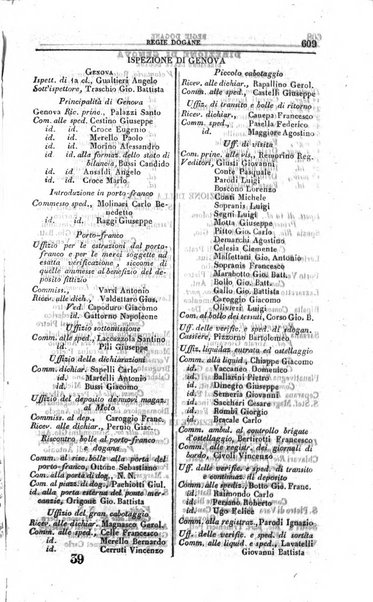 REGIE DOGANE
609
ISPEZIONE DI GENOVA
Genova
Ispett. di 1a cl., Gualtieri Angelo
Sott'ispettore, Traschio Gio. Battista
Principalità di Genova
Genova Ric. princ., Palazzi Santo
Com. alle sped. Cestino Giuseppe
id. id. Croce Eugenio
id. id. Merello Paolo
id. id. Morino Alessandro
id. alla formaz. dello stato di
bilancia, Bussi Candido
id. id. Ansaldi Angelo
id. id. Croce Carlo
Introduzione in porto-franco
Commesso sped., Molinari Carlo Be-
nedetto
id. id. Raggi Giuseppe
Porto-franco
Uffizio per le estrazioni dal porto-
franco e per le merci soggette ad
esatta verificazione, siccome di
quelle ammesse al benefizio del de-
posito fittizio
Commiss., Varsi Antonio
Ricev. alle dich., Valdettaro Gius.
Ved Capoduro Giacomo
id. Gatturno Napoleone
Uffizio sottomissione
Comm. alle sped., Lacassola Santino
id. id. Pili Giuseppe
Uffizio delle dichiarazioni
Comm. dichiar. Sapelli Carlo
id. id. Martelli Antonio
id. id. Bussi Giacomo
Uffizio del deposito de'nuovi magaz.
al Molo
Commiss. al dep., Caroggio Franc.
Ricev. alle dichiar., Perolo Giac.
Riscontro bolle al porto-franco
dogana
Comm. al risc. bolle alla porta del
porto-franco, Ottone Sebastiano
Com. alla porta di dog., N. N.
Com. alla porta di dog., Pachiotti Giul.
id. alla porta esterna del ponte mer-
canzie, Origone Gio. Battista
Uffizio del gran cabotaggio
Ricev. alle dichiar. Magnasco Gerol.
Comm. alle sped. Celle Francesco
id. id. Merello Bernardo
id. id. Cerruti Vincenzo
39
Piccolo cabotaggio
Ricev. alle dichiar., Rapallino Gerol.
Comm. alle sped., Castelli Giuseppe
Uffiz. di transito e bolle di ritorno
Ricev. alle dichiar., Canepa Francesco
Comm. alle sped., Pasella Francesco
id. id. Maggiore Agostino
Uff. di visita
Com. princ. alle vis., Remorino Reg.
Veditori, Giusti Giovanni
Conte Pasquale
Parodi Luigi
Boscono Lorenzo
Conti Michele
Sopranis Luigi
Segni Luigi
Motta Giuseppe
Pitto Gio. Carlo
Demarchi Agostino
Celesia Giovanni
Malfettani Gio. Antonio
Sopranis Francesco
Marchelli Gio. Bat.
Bollo Gio. Batt.
Caroggio Giacomo
Olivari Giuseppe
Com. al bollo dei tessuti, Corso Gio. B.
Uff. delle verific. e sped. di sdogan.
Cassiere, Pizzorno Bartolomeo
Uffiz. liquidaz. entrata ed ostellaggio
Comm. alla liquid., Chiappe Giacomo
id. Vaccaneo Domenico
id. Ballarini Pietro
id. Dinegio Giuseppe
id. Semeria Giovanni
id. Saccheri Cesare
id. Rombi Giorgio
id. Brscale Carlo
Comm. ambul. al controllo brigate
d'ostellaggio, Bertirotti Francesco
Comm. alla registraz. dei giornali di
bordo, Ciroli Vincenzo
Uff. delle verific. e sped. di transito
e continuaz. di deposito
Comm. alle spediz., Botto Gio. Franc.
id. Raimondo Carlo
id. Persano Roberto
id. Ugo Felice
Comm. alla registraz., Parodi Ignazio
Uff. delle verific. e sped. di sortita
Comm. alle liquid. e sped., Lavatelli
Giovanni Battista